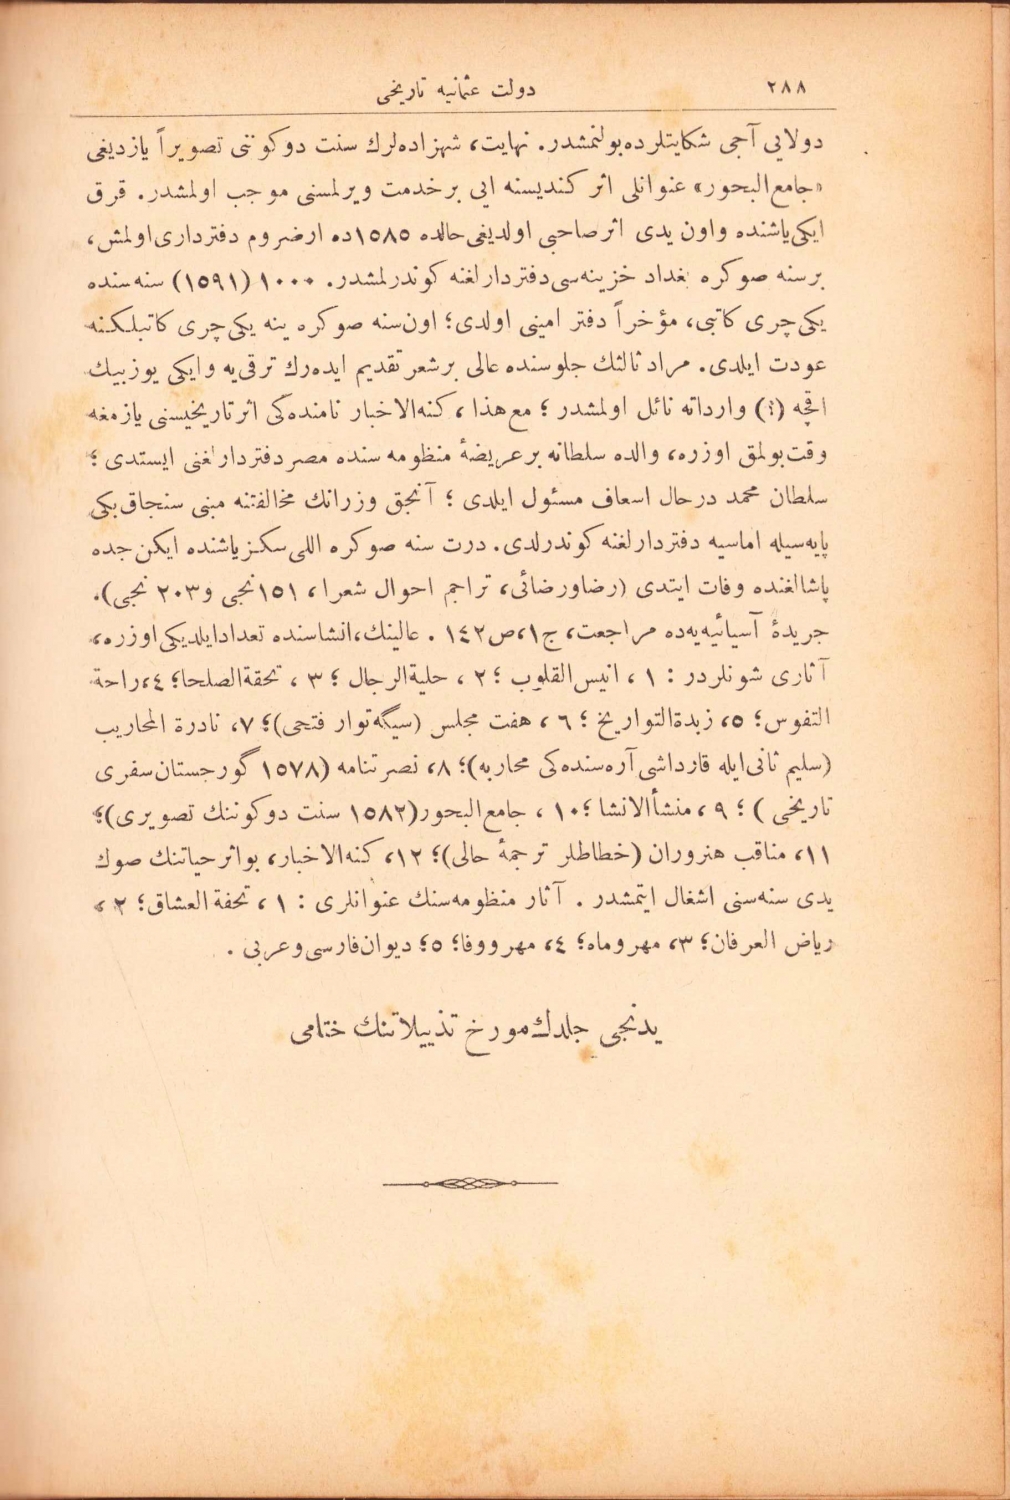 ٢٨٨
دولت عثمانيه تاريخى
دولايى آجى شكايتلرده بولنمشدر. نهايت، شهزاده‌لرك سنت دوكوننى تصويراً يازديغى
«جامع البحور» عنوانلى اثر كنديسنه ايى بر خدمت ويرلمسنى موجب اولمشدر. قرق
ايكى ياشنده واون يدى اثر صاحبى اولديغى حالده ١٥٨٥ده ارضروم دفتردارى اولمش،
بر سنه صوكره بغداد خزينه‌سى دفتردارلغنه كوندرلمشدر. ١٠٠٠ (١٥٩١) سنه سنده
يكى چرى كاتبى، مؤخراً دفتر امينى اولدى؛ اون سنه صوكره ينه يكى چرى كاتبلكنه
عودت ايلدى. مراد ثالثك جلوسنده عالى بر شعر تقديم ايده‌رك ترقى‌يه وايكى يوز بيك
اقچه (؟) وارداته نائل اولمشدر ؛ مع هذا ، كنه الاخبار نامنده‌كى اثر تاريخيسنى يازمغه
وقت بولمق اوزره، والده سلطانه بر عريضهٔ منظومه سنده مصر دفتردارلغنى ايستدى ؛
سلطان محمد درحال اسعاف مسئول ايلدى ؛ آنجق وزرانك مخالفتنه مبنى سنجاق بكى
پايه‌سيله اماسيه دفتردارلغنه كوندرلدى. درت سنه صوكره اللى سكز ياشنده ايكن جده
پاشالغنده وفات ايتدى (رضا ورضائى، تراجم احوال شعرا، ١٥١ نجى و٢٠٣ نجى).
جريدهٔ آسيائيه‌يه‌ده مراجعت، ج١، ص١٤٢ . عالينك، انشاسنده تعداد ايلديكى اوزره،
آثارى شونلردر : ١ ، انيس القلوب ؛ ٢ ، حلية الرجال ؛ ٣ ، تحفة الصلحا؛ ٤، راحة
النفوس؛ ٥، زبدة التواريخ ؛ ٦ ، هفت مجلس (سيگه‌توار فتحى)؛ ٧، نادرة المحاريب
(سليم ثانى ايله قارداشى آره‌سنده‌كى محاربه)؛ ٨، نصرتنامه (١٥٧٨ گورجستان سفرى
تاريخى ) ؛ ٩ ، منشأ الانشا ؛ ١٠ ، جامع البحور (١٥٨٢ سنت دوكوننك تصويرى)؛
١١، مناقب هنروران (خطاطلر ترجمهٔ حالى)؛ ١٢، كنه الاخبار، بو اثر حياتنك صوك
يدى سنه‌سنى اشغال ايتمشدر . آثار منظومه‌سنك عنوانلرى : ١ ، تحفة العشاق؛ ٢ ،
رياض العرفان؛ ٣، مهر وماه؛ ٤، مهر ووفا؛ ٥؛ ديوان فارسى وعربى .
يدنجى جلدك مورخ تذييلاتنك ختامى